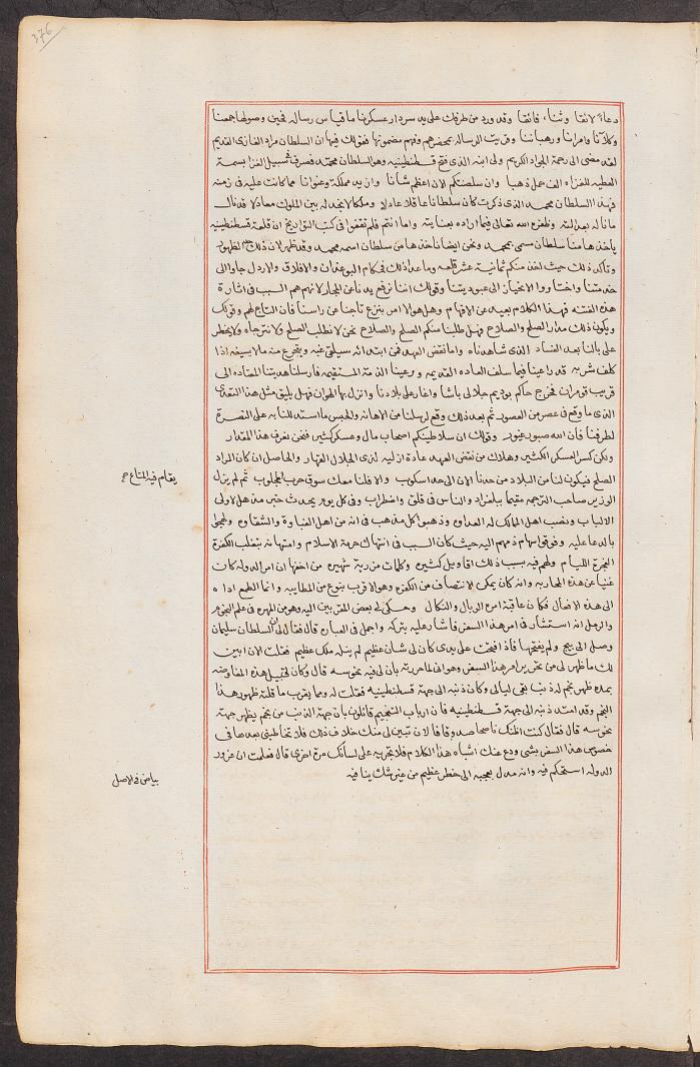 376
دعاءً لائقا وثناء فائقا وقد ورد من طرفك على يد سردار عسكرنا ما قياس رسالة فحين وصولها جمعنا
وكلآنا وامرانا ورهباننا وقريت الرسالة بمحضرهم وفهم مضمونها فقولك فيها ان السلطان مراد الغازى القديم
لقد مضى الى رحمة الجواد الكريم ولى ابنه الذى فتح قسطنطينيه وهو السلطان محمد فصرف لسبيل الغزا بسمة
العطيه للغزاه الف حمل ذهبا وان سلطنتكم الان اعظم شانا وازيد مملكة وعنوانا مما كانت عليه فى زمنه
فهذا السلطان محمد الذى ذكرت كان سلطانا عاقلا عادلا وملكا لا يجد له بين الملوك معادلا قد نال
ما ناله بعدالته وظفره الله تعالى فيما اراده بعنايته واما انتم فلم تقفوا فى كتب التواريخ ان قلعة قسطنطينيه
ياخذها منا سلطان سمى بمحمد ونحن ايضا ناخذها من سلطان اسمه محمد وقد ظهر لان ذلك الظهور
وتاكد ذلك حيث اخذ منكم ثمانية عشر قلعه وما عدا ذلك فحكام البوغدان والافلاق والاردل جاوا الى
خدمتنا واختاروا الاغيار الى عبوديتنا وقولك اننا نرفع يدنا عن المجار لانهم هم السبب فى اثارة
هذه الفتنه فهذا الكلام بعيد عن الافهام وهل هو الا امر بنزع تاجنا عن راسنا فان التاج لهم وقولك
ويكون ذلك مدار الصلح والصلاح فهل طلبنا منكم الصلح والصلاح نحن لا نطلب الصلح ولا نترجاه ولا يخطر
على بالنا بعد الفساد الذى شاهدناه واما نقض العهد فمن ابتدائه سيلقى غبه ويتجرع منه ما لا يسيغه اذا
كلف شربه قد راعينا فيما سلف العاده القديمه ورعينا الذمة المستقيمه فارسلنا هديتنا المعتاده الى
قريب قومران فخرج حاكم بوديم جلالى باشا واغار على بلادنا وانزل بها الهوان فهل يليق مثل هذا التعدى
الذى ما وقع فى عصر من العصور ثم بعد ذلك وقع لرسلنا من الاهانة والحبس ما استدللنا به على النصرة
لطرفنا فان الله صبور غيور وقولك ان سلاطينكم اصحاب مال وعسكر كثير فنحن نعرف هذا المقدار
ولكن كسر العسكر الكثير وهلاك من نقض العهد عادة ازليه لذى الجلال القهار والحاصل ان كان المراد
الصلح فيكون لنا من البلاد من حدنا الان الى حد اسكوب والا فلنا معك سوق حرب المجلوب ثم لم يزل
الوزير صاحب الترجمه مقيما ببلغراد والناس فى قلق واضطراب وفى كل يوم يحدث خبر مذهل لاولى
الالباب ونصب اهل الممالك له العداوه وذهبوا كل مذهب فى انه من اهل الغباوة والشقاوه ولهجوا
بالدعا عليه وفوقوا سهام ذمهم اليه حيث كان السبب فى انتهاك حرمة الاسلام وامتهانه بتغلب الكفرة
الفجرة اللئام ولهم فيه بسبب ذلك اقاويل كثيره وكلمات مزرية شهيره من اخفها ان امر الدوله كان
غنيا عن هذه المحاربه وانه كان يمكن الانتصاف من الكفره وهو الاقرب بنوع من المطايبه وانما الطمع اداه
الى هذه الافعال فكان عاقبة امره الوبال والنكال وحكى لى بعض المقربين اليه وهو من المهره فى علم النجوم
والرمل انه استشاره فى امر هذا السفر فاشار عليه بتركه واجمل فى العباره قال فقال لى ان السلطان سليمان
وصل الى بيج ولم يفتحها فاذا فتحت على يدى كان لى شان عظيم لم ينله ملك عظيم فقلت الان ابين
لك ما ظهر لى من نحوس امر هذا السفر وهو انى لما حررته بان لى فيه نحوسه قال وكان قبيل هذه المفاوضه
بمدة ظهر نجم له ذنب بقى ليالى وكان ذنبه الى جهة قسطنطينيه فقلت له ومما يقرب ما قلته ظهور هذا
النجم وقد امتد ذنبه الى جهة قسطنطينيه فان ارباب التنجيم قائلون بان جهة الذنب من نجم يظهر جهة
نحوسه قال فقال كنت اظنك ناصحا صدوقا فالان تبين لى منك خلاف ذلك فلا تخاطبنى بعدها فى
خصوص هذا السفر بشى ودع عنك اشباه هذا الكلام فلا تجريه على لسانك مرة اخرى قال فعلمت ان غرور
الدوله استحكم فيه وانه مدل بعجبه الى خطر عظيم من غير شك ينافيه
يقام فيه المتاع
بياض فى الاصل